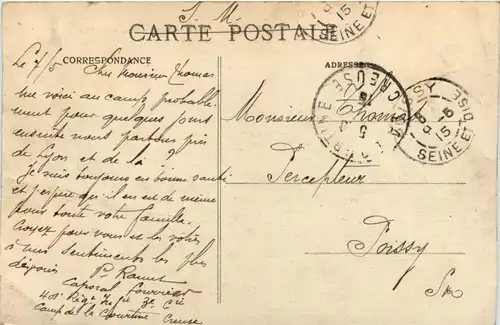 S. M.
CARTE POSTALE
CORRESPONDANCE
ADRESSE
Le 7/5
Cher Monsieur Thomas
me voici au camp probable-
ment pour quelques jours
ensuite nous partons près
de Lyon et de la ?
Je suis toujours en bonne santé
et j'espère qu'il en est de même
pour toute votre famille.
Croyez pour vous et les vôtres
à mes sentiments les plus
dévoués
Caporal fourrier
401e Régt Inf ie 7e Cie
Camp de la Courtine Creuse
Monsieur Thomas
Percepteur
Poissy
S&O
POISSY
SEINE ET OISE
15
SEINE ET
15
CREUSE